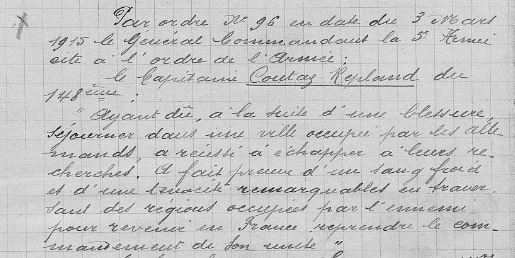 Par ordre N° 96 en date du 3 Mars
1915 le Général Commandant la 5e Armée
cite à l'ordre de l'Armée :
le Capitaine Coutaz Repland du
148ème :
"Ayant dû, à la suite d'une blessure,
séjourner dans une ville occupée par les alle-
mands, a réussi à échapper à leurs re-
cherches. A fait preuve d'un sang froid
et d'une tenacité remarquables en traver-
sant des régions occupées par l'ennemi
pour revenir en France reprendre le com-
mandement de son unité"